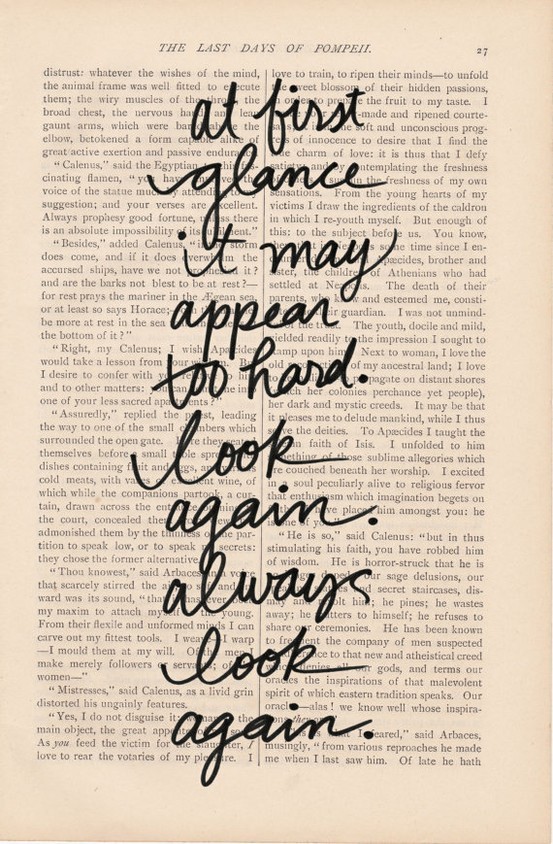 THE LAST DAYS OF POMPEII. 27
at first
glance
it may
appear
too hard.
look
again.
always
look
again.
distrust: whatever the wishes of the mind,
the animal frame was well fitted to execute
them; the wiry muscles of the
broad chest, the nervous
gaunt arms, which were
elbow, betokened a form
great active exertion and passive
“Calenus,” said the Egyptian
cinating flamen, “you
voice of the statue
suggestion; and your verses are excellent.
Always prophesy good fortune, there
is an absolute impossibility
“Besides,” added Calenus,
does come, and if it does the
accursed ships, have we not it?
and are the barks not blest to be at rest?—
for rest prays the mariner in the Ægean sea,
or at least so says Horace;
be more at rest in the sea
the bottom of it?”
“Right, my Calenus; I wish Apæcides
would take a lesson from
I desire to confer with
and to other matters:
one of your less sacred
“Assuredly,” replied the priest, leading
the way to one of the small chambers which
surrounded the open gate. they
themselves before small
dishes containing fruit and
cold meats, with wine, of
which while the companions partook, a cur-
tain, drawn across the
the court, concealed
admonished them by the of the par-
tition to speak low, or to speak secrets:
they chose the former alternative.
“Thou knowest,” said Arbaces,
that scarcely stirred the
ward was its sound, “that
my maxim to attach the young.
From their flexile and unformed minds I can
carve out my fittest tools. I warp
—I mould them at my will. Of
make merely followers
women—”
“Mistresses,” said Calenus, as a livid grin
distorted his ungainly features.
“Yes, I do not disguise it: the
main object, the great
As you feed the victim for slaughter, I
love to rear the votaries of my pleasure. I
love to train, to ripen their minds—to unfold
the sweet blossom of their hidden passions,
the fruit to my taste. I
made and ripened courte-
the soft and unconscious prog-
of innocence to desire that I find the
charm of love: it is thus that I defy
contemplating the freshness
the freshness of my own
sensations. From the young hearts of my
victims I draw the ingredients of the caldron
in which I re-youth myself. But enough of
this: to the subject before us. You know,
time since I en-
Apæcides, brother and
sister, the children of Athenians who had
settled at The death of their
parents, who and esteemed me, consti-
guardian. I was not unmind-
The youth, docile and mild,
yielded readily to the impression I sought to
upon him. Next to woman, I love the
old of my ancestral land; I love
on distant shores
her colonies perchance yet people),
her dark and mystic creeds. It may be that
it pleases me to delude mankind, while I thus
serve the deities. To Apæcides I taught the
faith of Isis. I unfolded to him
those sublime allegories which
are couched beneath her worship. I excited
in a soul peculiarly alive to religious fervor
that enthusiasm which imagination begets on
place him amongst you: he
“He is so,” said Calenus: “but in thus
stimulating his faith, you have robbed him
of wisdom. He is horror-struck that he is
our sage delusions, our
secret staircases, dis-
him; he pines; he wastes
away; he mutters to himself; he refuses to
share our ceremonies. He has been known
to frequent the company of men suspected
to that new and atheistical creed
denies gods, and terms our
oracles the inspirations of that malevolent
spirit of which eastern tradition speaks. Our
alas! we know well whose inspira-
feared,” said Arbaces,
musingly, “from various reproaches he made
me when I last saw him. Of late he hath